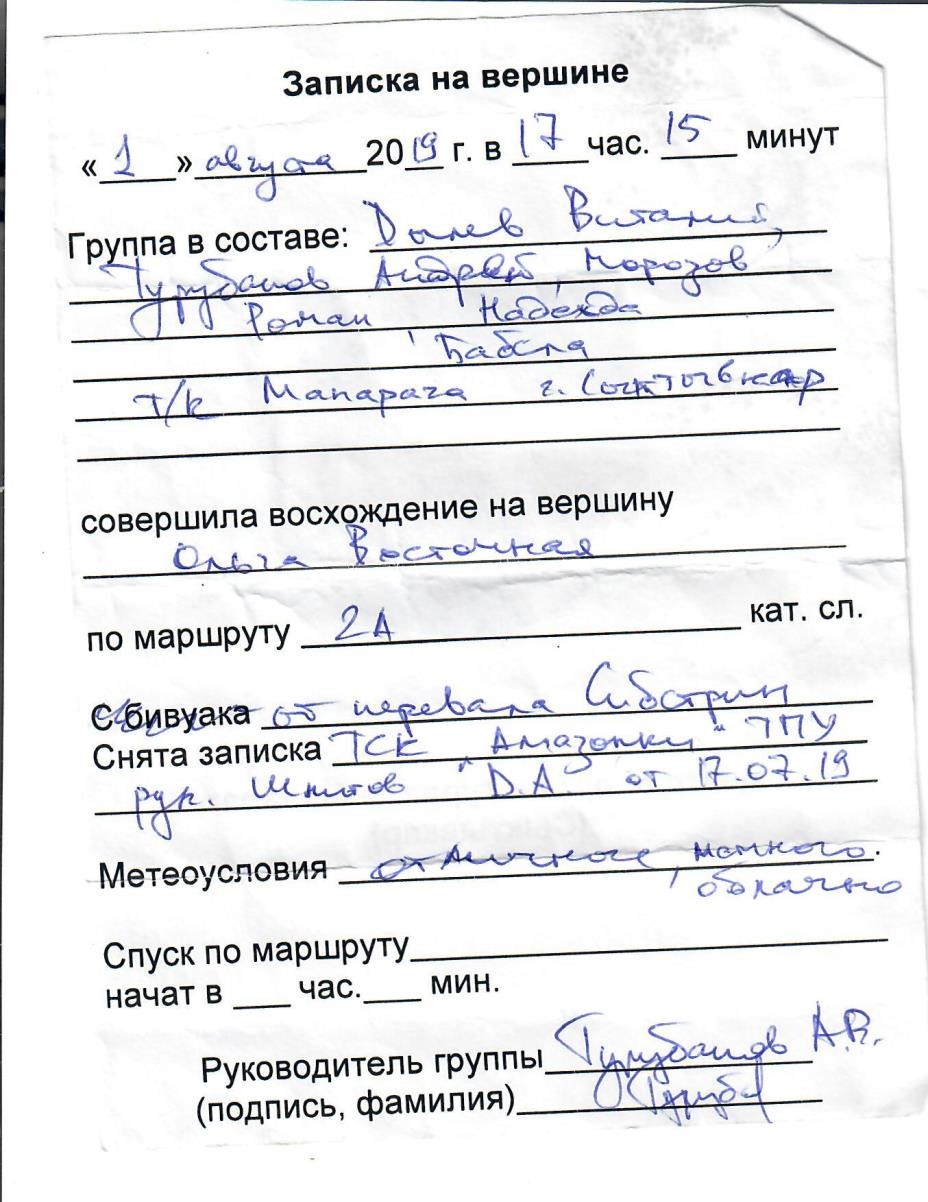 Записка на вершине
«1» августа 2019 г. в 17 час. 15 минут
Группа в составе: Дымов Виталий,
Турубанов Андрей, Морозов
Роман, Надежда
Бабела
т/к Мапарага г. Сыктывкар
совершила восхождение на вершину
Ольга Восточная
по маршруту 2А кат. сл.
С бивуака от перевала Сибстрин
Снята записка ТСК "Амазонки" ТПУ
рук. D.A. от 17.07.19
Метеоусловия отличные, немного.
облачно
Спуск по маршруту
начат в ___ час.___ мин.
Руководитель группы Турубанов А.В.
(подпись, фамилия)